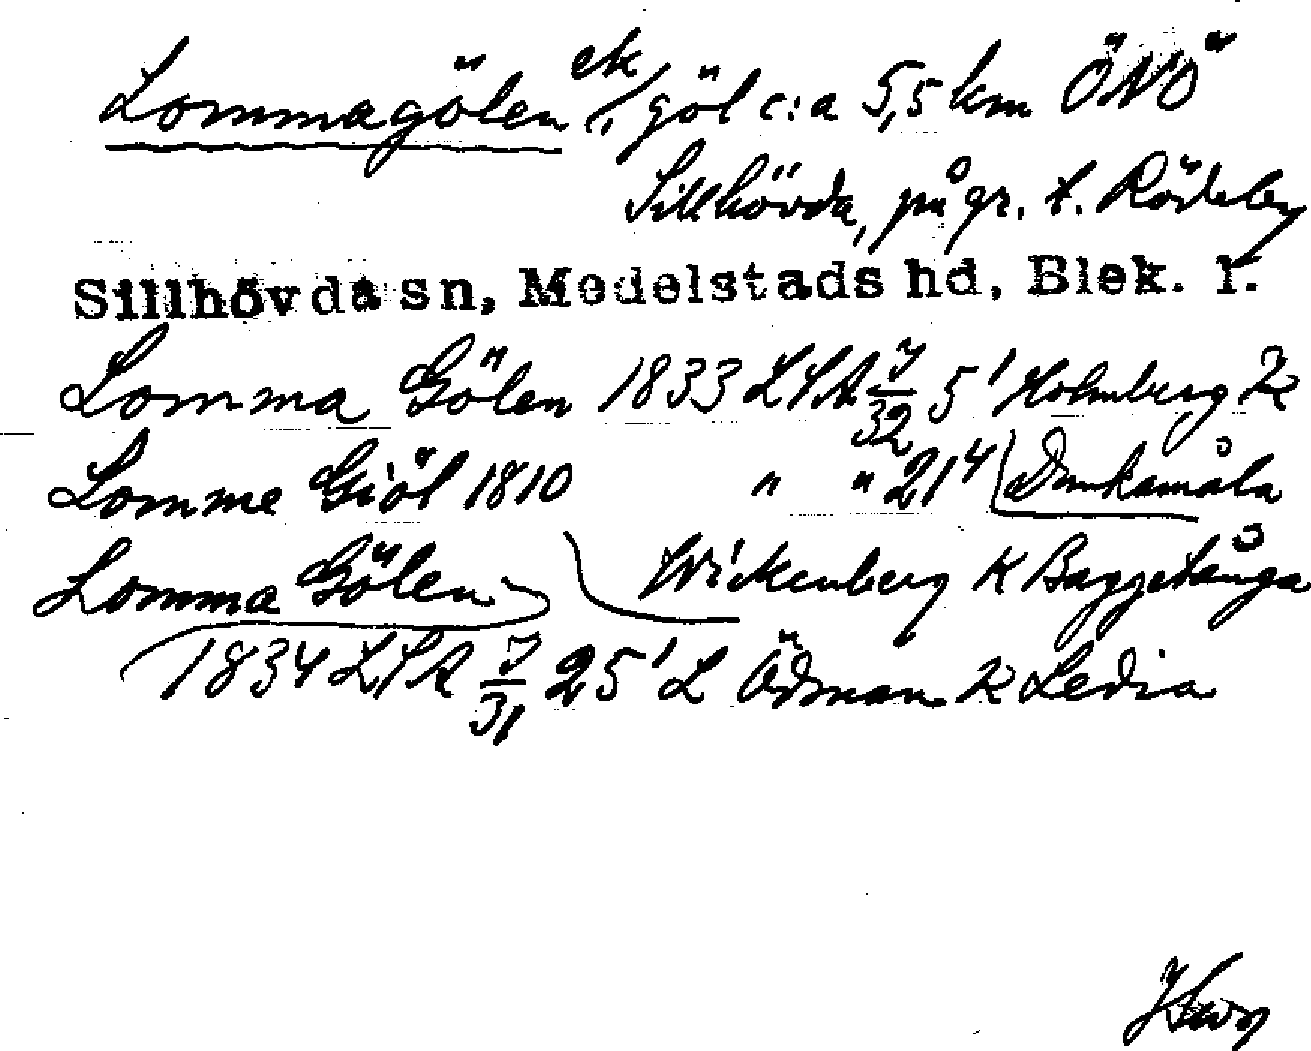 Lommagölen ek, göl c:a 5,5 km ÖNÖ
Sillhövda, på gr. t. Rödeby
Sillhövda sn, Medelstads hd, Blek. l.
Lomma Gölen 1833 LSA 7/32 5¹ Holmberg K
Lomme Giöl 1810 " " 21⁴ Dunkamåla
Lomma Gölen Wickenberg K Baggetånga
1834 LSA 7/31 25¹ L Ödman K Ledia